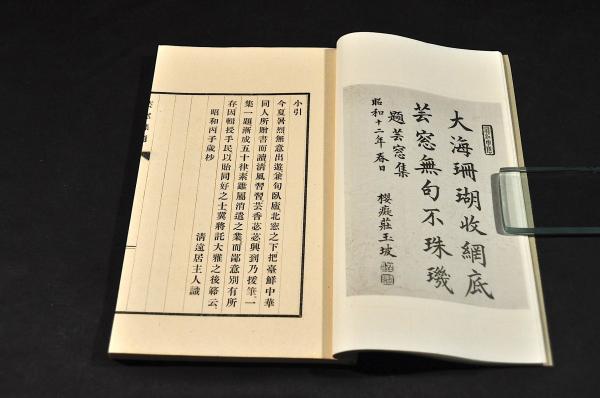 大海珊瑚收網底
芸窓無句不珠璣
題芸窓集
昭和十二年春日
櫻癡莊玉坡
小引
今夏暑烈無意出遊兼旬臥廬北窓之下把臺鮮中華
同人所贈書而讀清風習習芸香苾苾興到乃援筆一
集一題漸成五十律素雖屬消遣之業而鄙意別有所
存因輯授手民以貽同好之士冀將託大雅之後籍云
昭和丙子歲杪
清遠居主人識